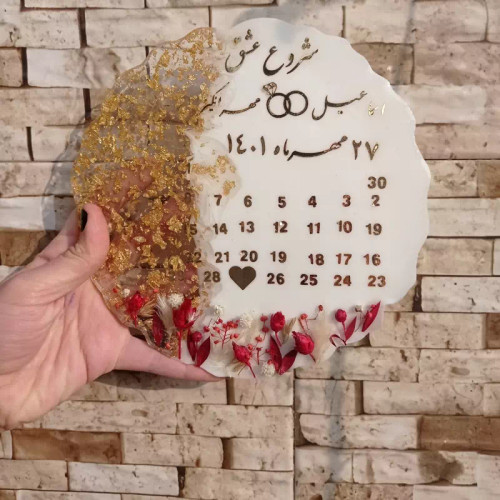 شروع عشق
عسل مهرانگیز
۲۷ مهرماه ۱۴۰۱
30
7 6 5 4 3 2
15 14 13 12 11 10 19
22 21 20 19 18 17 16
28 26 25 24 23